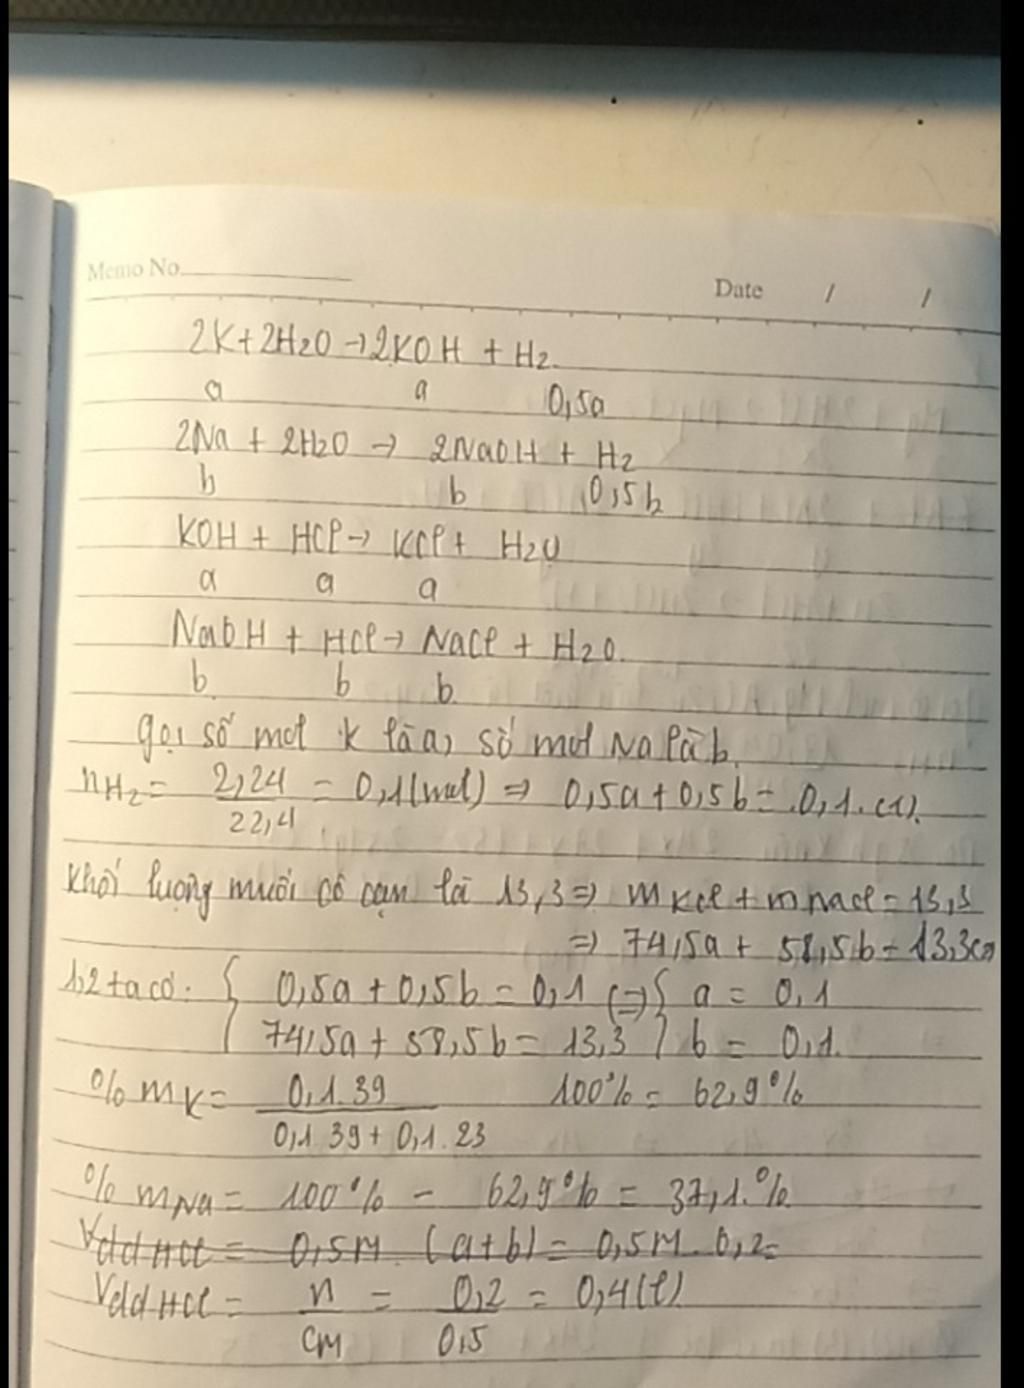 Memo No.
Date / /
2K + 2H2O → 2KOH + H2.
a a 0,5a
2Na + 2H2O → 2NaOH + H2
b b 0,5b
KOH + HCl → KCl + H2O
a a a
NaOH + HCl → NaCl + H2O.
b b b
gọi số mol K là a, số mol Na là b.
nH2 = 2,24/22,4 = 0,1(mol) ⇒ 0,5a + 0,5b = 0,1. (1).
Khối lượng muối cô cạn là 13,3 ⇒ mKCl + mNaCl = 13,3
⇒ 74,5a + 58,5b = 13,3(2)
1,2 ta có: { 0,5a + 0,5b = 0,1 (⇒) { a = 0,1
74,5a + 58,5b = 13,3 b = 0,1.
% mK = 0,1.39 / 0,1.39 + 0,1.23 100% = 62,9%
% mNa = 100% - 62,9% = 37,1.%.
Vdd HCl = 0,5M. (a+b) = 0,5M. 0,2=
Vdd HCl = n/CM = 0,2/0,5 = 0,4(l)